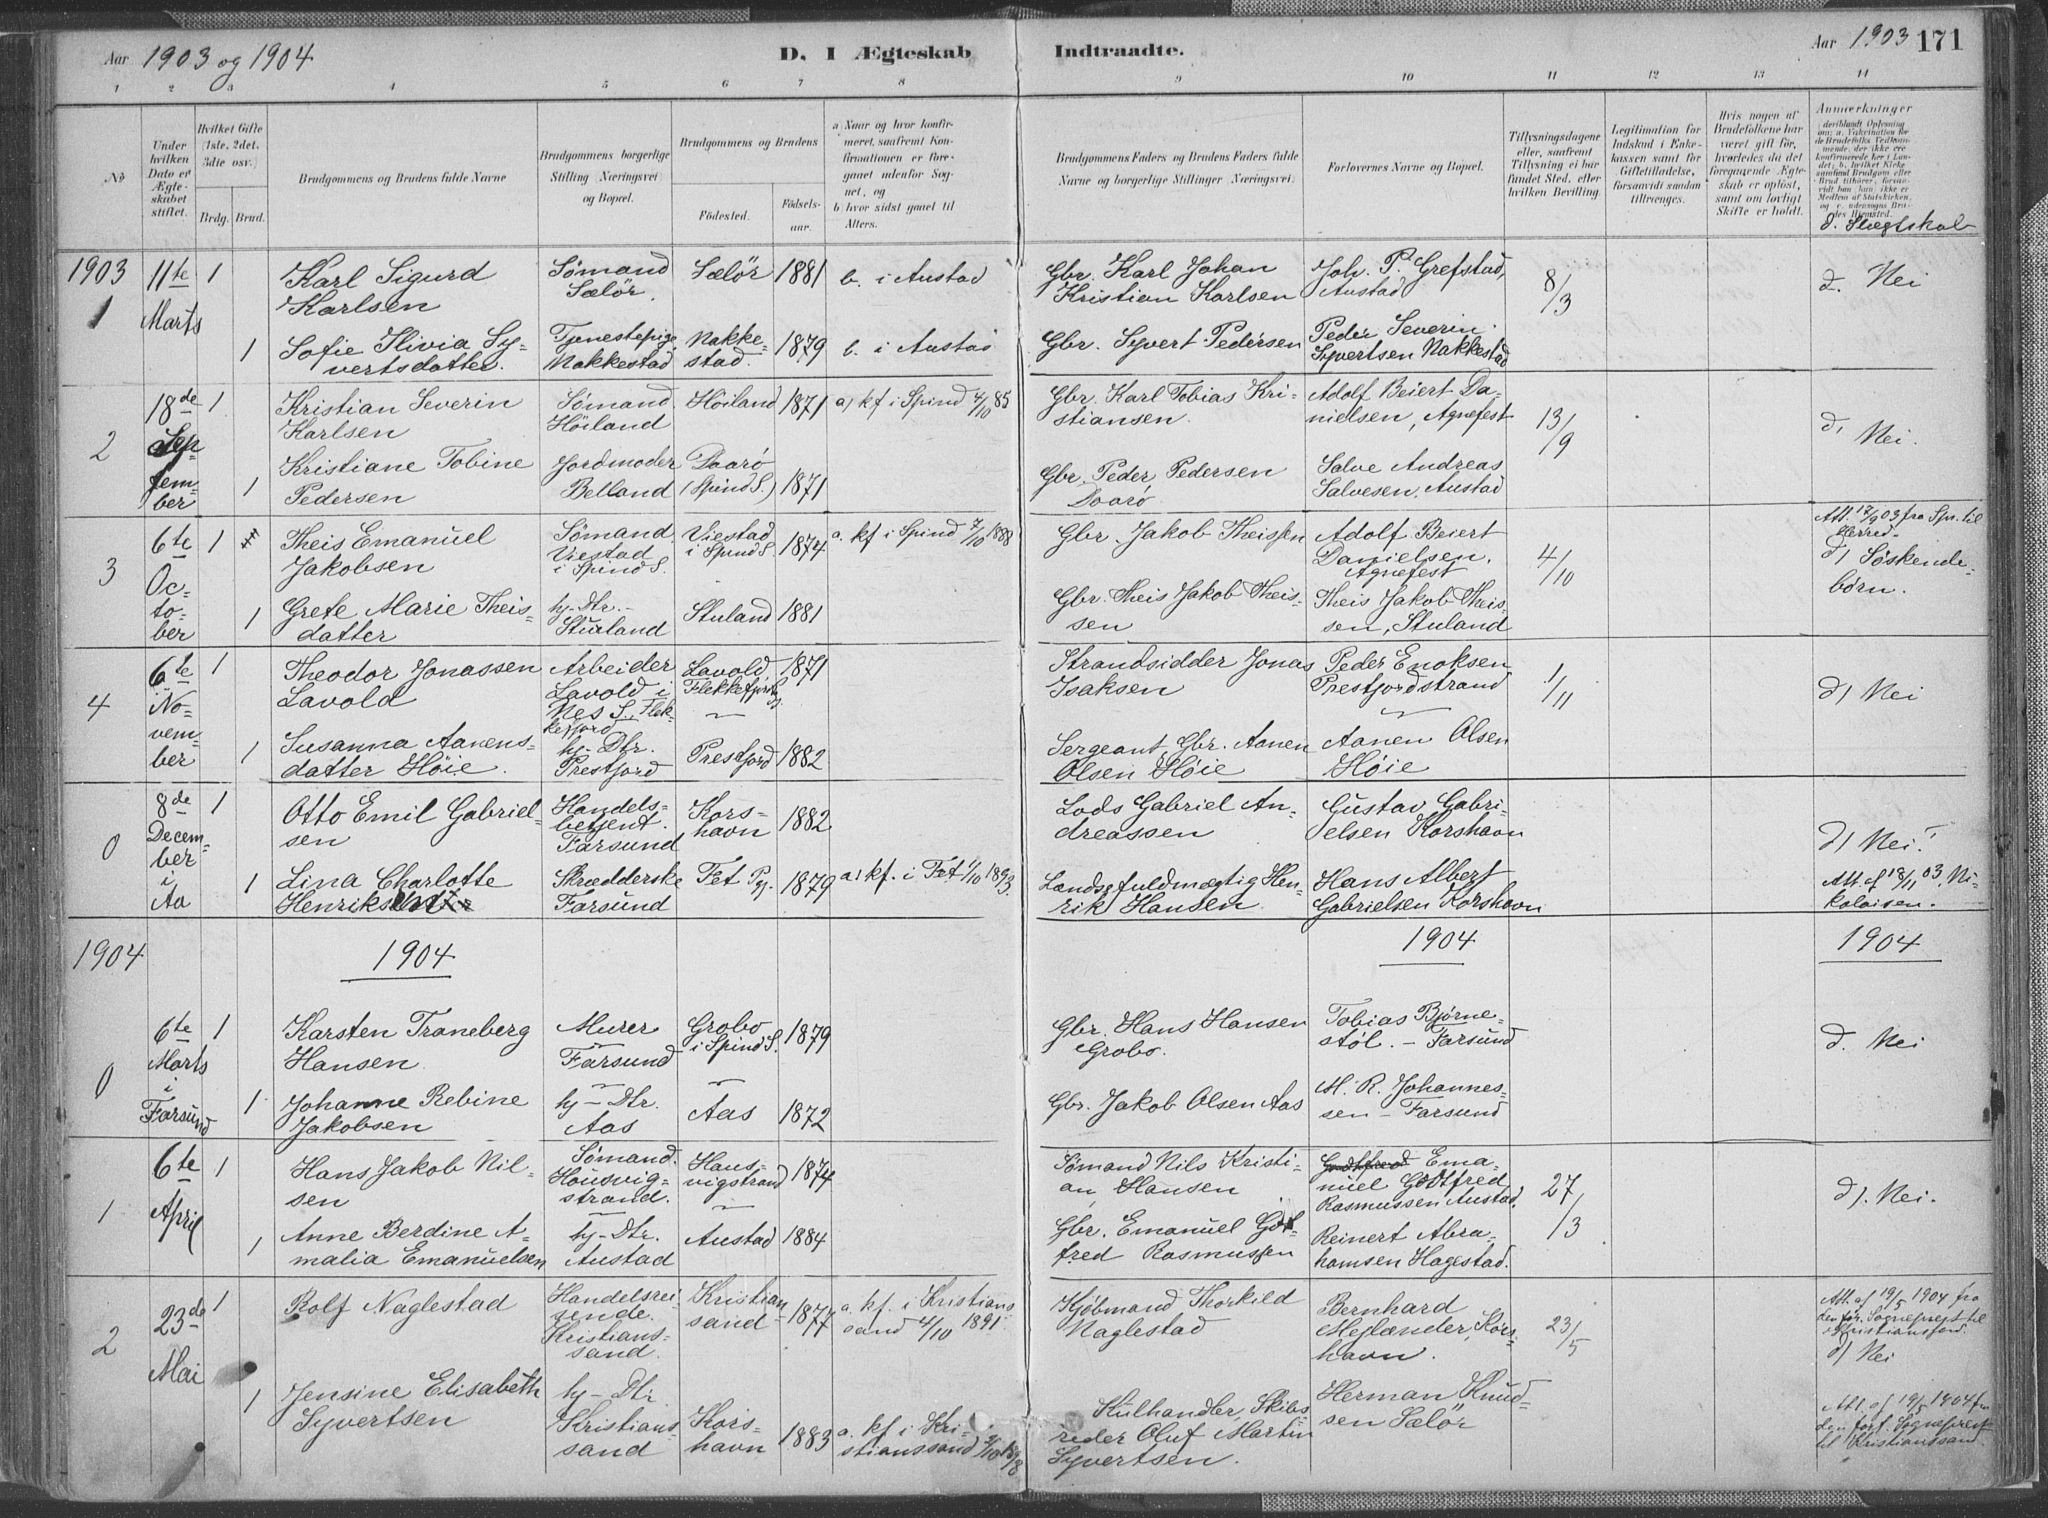 Aar 1903 og 1904
D. I Ægteskab
Indtraadte.
Aar 1903 171
1 2 3 4 5 6 7 8 9 10 11 12 13 14
No
Under hvilken Dato er Ægteskabet stiftet.
Hvilket Gifte (1ste, 2det, 3die osv.)
Brdg. Brud.
Brudgommens og Brudens fulde Navne
Brudgommens borgerlige Stilling (Næringsvei) og Bopæl.
Brudgommens og Brudens
Fødested.
Fødselsaar.
a) Naar og hvor konfirmeret, saafremt Konfirmationen er foregaaet udenfor Sognet, og
b) hvor sidst gaaet til Alters.
Brudgommens Faders og Brudens Faders fulde Navne og borgerlige Stillinger (Næringsvei).
Forlovernes Navne og Bopæl.
Tillysningsdagene eller, saafremt Tillysning ei har fundet Sted, efter hvilken Bevilling.
Legitimation for Indskud i Enkekassen samt for Giftetilladelse, forsaavidt saadan tiltrænges.
Hvis nogen af Brudefolkene har været gift før, hvorledes da det foregaaende Ægteskab er opløst, samt om lovligt Skifte er holdt.
Anmærkninger
d. Slægtskab
1903
1
11te Marts
1
Karl Sigurd
Karlsen
Sømand
Sælør.
Sælör
1881
b. i Austad
Gbr. Karl Johan
Kristian Karlsen
Joh. P. Grefstad,
Austad
8/3
d. Nei
1
Sofie Ilivia Sy-
vertsdatter.
Tjenestepige
Nakkestad
Nakke-
stad.
1879
b. i Austad
Gbr. Syvert Pedersen
Peder Severin
Syvertsen Nakkestad
2
18de Sep-
tem-
ber
1
Kristian Severin
Karlsen
Sømand
Höiland
Höiland
1871
a) kf i Spind 4/10 85
Gbr. Karl Tobias Kri-
stiansen.
Adolf Beiert Da-
nielsen, Agnefest
13/9
d, Nei.
1
Kristiane Tobine
Pedersen
Jordmoder
Belland
Daarø
(Spind S.)
1871
Gbr. Peder Pedersen
Daarø
Salve Andreas
Salvesen, Austad
3
6te
Oc-
to-
ber
1
Theis Emanuel
Jakobsen
Sømand
Viestad
i Spind S.
Viestad
i Spind S.
1874
a. kf i Spind 7/10 1888
Gbr. Jakob Theissen
Adolf Beiert
Danielsen.
Agnefest
4/10
Att. 17/9 03 fra Spr. til
Herred.
d) Söskende-
börn.
1
Grete Marie Theis-
datter
hj-Dtr.
Stuland
Stuland
1881
Gbr. Theis Jakob Theis-
sen
Theis Jakob Theis-
sen, Stuland
4
6te
No-
vem-
ber
1
Theodor Jonassen
Lavold
Arbeider
Lavold i
Nes S., Flek-
kefjord
Lavold
Flekkefjords
1871
Strandsidder Jonas
Isaksen
Peder Enoksen
Prestfjordstrand
1/11
d) Nei
1
Susanna Aanens-
datter Höie.
hj-Dtr.
Prestfjord
Prestfjord
1882
Sergeant, Gbr. Aanen
Olsen Höie
Aanen Olsen
Höie
0
8de
Decem-
ber
i
Aa
1
Otto Emil Gabriel-
sen
Handels-
betjent.
Farsund
Kors-
havn
1882
Lods Gabriel An-
dreassen
Gustav Gabri-
elsen Korshavn
d) Nei.
1
Lina Charlotte
Henriksen
Skrædderske
Farsund
Fet Pgj.
1879
a) kf. i Fet 1/10 1893.
Landsefuldmægtig Hen-
rik Hansen
Hans Albert
Gabrielsen Korshavn
Att. af 18/11 03, Ni-
kolaisen.
1904
1904
1904
1904
0
6te
Marts
i
Farsund
1
Karsten Traneberg
Hansen
Murer
Farsund
Grobo
i Spind S.
1879
Gbr. Hans Hansen
Grobo.
Tobias Bjørne-
støl. - Farsund
d. Nei
1
Johanne Rebine
Jakobsen
hj-Dtr.
Aas
Aas
1872
Gbr. Jakob Olsen Aas
M. R. Johannes-
sen - Farsund
1
6te
April
1
Hans Jakob Nil-
sen
Sömand.
Hausvig-
strand.
Haus-
vigstrand
1874
Sømand Nils Kristi-
an Hansen
Ema-
nuel Godtfred
Rasmussen Austad.
27/3
d). Nei.
1
Anne Berdine A-
malia Emanuelsen
hj-Dtr.
Austad
Austad
1884
Gbr. Emanuel Got-
fred Rasmussen
Reinert Abra-
hamsen Hagestad.
2
23de
Mai
1
Rolf Naglestad
Handelsrei-
sende.
Kristians-
sand.
Kristian
sand
1877
a. kf. i Kristians-
sand 4/10 1891.
Kjöbmand Thorkild
Naglestad
Bernhard
Mejlænder, Kors-
havn.
23/5
Att. af 19/5 1904 fra
den for. Sogneprest til
Kristianssand.
d) Nei
1
Jensine Elisabeth
Syvertsen
hj-Dtr.
Kristians-
sand
Kors-
havn
1883
a. kf i Kri-
stianssand 2/10 1898
Kulhandler, Skibs-
reder Oluf Martin
Syvertsen.
Herman Knud-
sen Sælör
Att. af 19/5 1904 fra
den fort. Sogneprest
til Kristianssand.